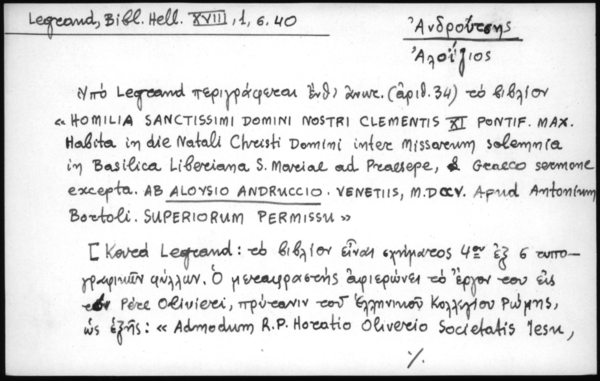 Legrand, Bibl. Hell. XVIII, 1, σ. 40
Ἀνδρούτσης
Ἀλοΐσιος
Ὑπό Legrand περιγράφεται ἔνθ' ἀνωτ. (ἀριθ. 34) τό βιβλίον
« HOMILIA SANCTISSIMI DOMINI NOSTRI CLEMENTIS XI PONTIF. MAX.
Habita in die Natali Christi Domini inter Missarum solemnia
in Basilica Liberiana S. Mariae ad Praesepe, & Graeco sermone
excepta. AB ALOYSIO ANDRUCCIO. VENETIIS, M.DCCV. Apud Antonium
Bortoli. SUPERIORUM PERMISSU »
[Κατά Legrand: τό βιβλίον εἶναι σχήματος 4ου ἐξ 6 τυπο-
γραφικῶν φύλλων. Ὁ μεταφραστής ἀφιερώνει τό ἔργον του εἰς
τόν Père Olivieri, πρύτανιν τοῦ Ἑλληνικοῦ Κολλεγίου Ρώμης,
ὡς ἑξῆς: « Admodum R.P. Horatio Oliverio Societatis Iesu,
./.